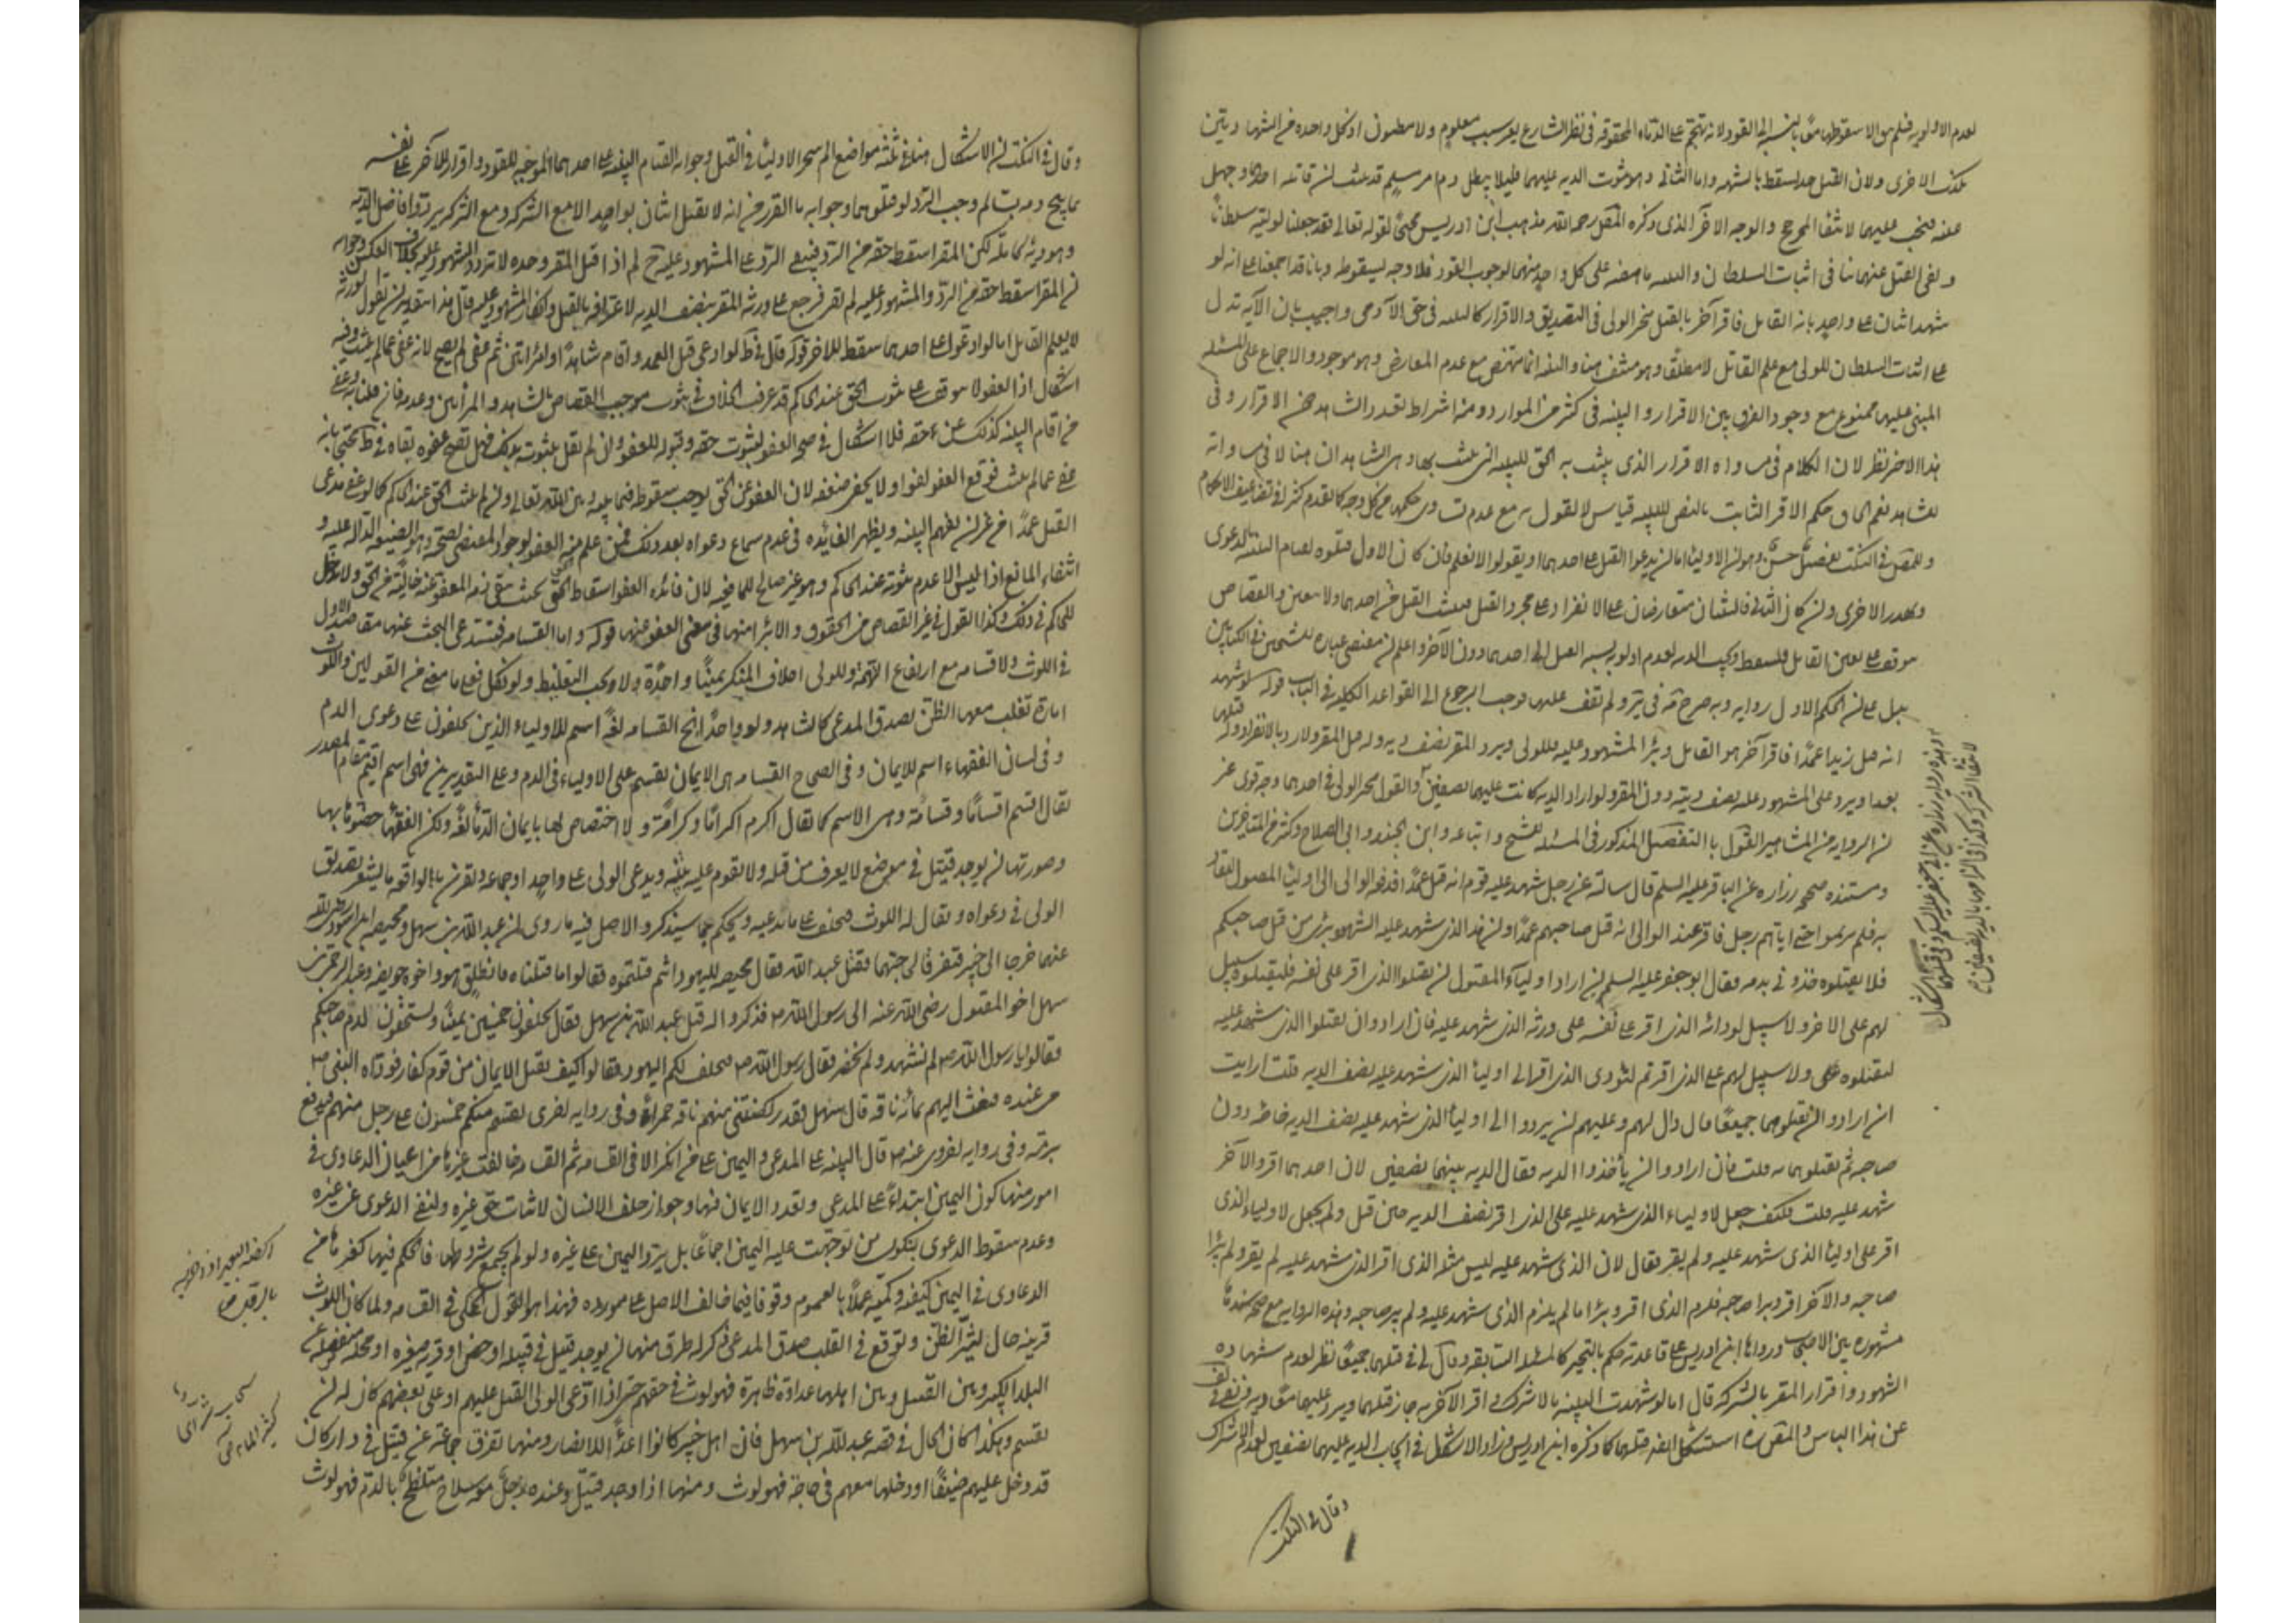 لعدم الاولوية فلم يبق الا سقوطهما معًا بالنسبة الى القود لانه تهجم على الدماء المحقونة في نظر الشارع بغير سبب معلوم ولا مظنون اذ كل واحدة من الشهادتين
تكذب الاخرى ولان القتل حد يسقط بالشبهة واما الثاني وهو ثبوت الدية عليهما فلئلا يبطل دم امر مسلم قد ثبت ان قاتله احدهما وجهل
عينه فتجب عليهما لانتفاء المرجح والوجه الاخر الذي ذكره المص رحمه الله مذهب ابن ادريس محتجًا لقوله تعالى فقد جعلنا لوليه سلطانًا
ونفي القتل عنهما ينافي اثبات السلطان والبينة ناهضة على كل واحد منهما لوجوب القود فلا وجه لسقوطه وبانا قد اجمعنا على انه لو
شهد اثنان على واحد بانه القاتل فاقر آخر بالقتل يتخير الولي في التصديق والاقرار كالبينة في حق الآدمي واجيب بان الآية تدل
على اثبات السلطان للولي مع علم القاتل لا مطلقًا وهو منتف هنا والبينة انما تنهض مع عدم المعارض وهو موجود والاجماع على المسئلة
المبني عليها ممنوع مع وجود الفرق بين الاقرار والبينة في كثير من الموارد ومنه اشتراط تعدد الشاهد دون الاقرار وفي
هذا الاخير نظر لان الكلام في مساواة الاقرار الذي يثبت به الحق للبينة التي يثبت بها وهي الشاهدان هنا لا في مساواته
للشاهد نعم الحاق حكم الاقرار الثابت بالنص للبينة قياس لا نقول به مع عدم تساوي حكمهما من كل وجه كما تقدم كثيرا في تضاعيف الاحكام
وللمص في النكت تفصيل حسن وهو ان الاولياء اما ان يدعوا القتل على احدهما او يقولوا لا نعلم فان كان الاول قتلوه لقيام البينة بالدعوى
وتهدر الاخرى وان كان الثاني فالبينتان متعارضتان على الانفراد وعلى مجرد القتل فيثبت القتل من احدهما ولا يتعين والقصاص
موقوف على تعين القاتل فيسقط وتجب الدية لعدم اولوية نسبة القتل الى احدهما دون الآخر واعلم ان مقتضى عبارة الشيخين في الكتابين
يدل على ان الحكم الاول رواية وبه صرح في ير ولم نقف عليها فوجب الرجوع الى القواعد الكلية في الباب قوله لو شهد
انه قتل زيدا عمدًا فاقر آخر هو القاتل وبرأ المشهود عليه فللولي ويرد المقر نصف ديته وله قتل المقر ولا رد بالانفراده وله قتلهما
بعد ان يرد على المشهود عليه نصف ديته دون المقر ولو اراد الدية كانت عليهما نصفين والقول بتخير الولي في احدهما وجه قوي غير
ان الرواية من المشاهير القول بالتفصيل المذكور في المسئلة للشيخ واتباعه وابن الجنيد وابي الصلاح وكثير من المتاخرين
ومستنده صحيحة زرارة عن الباقر عليه السلم قال سالته عن رجل شهد عليه قوم انه قتل عمدًا فدفعه الوالي الى اولياء المقتول ليقاد
به فلم يريموا حتى اتاهم رجل فاقر عند الوالي انه قتل صاحبهم عمدًا وان هذا الذي شهد عليه الشهود بريء من قتل صاحبكم
فلا تقتلوه وخذوني بدمه فقال ابو جعفر عليه السلم ان اراد اولياء المقتول ان يقتلوا الذي اقر على نفسه فليقتلوه ولا سبيل
لهم على الاخر ولا سبيل لورثة الذي اقر على نفسه على ورثة الذي شهد عليه فان ارادوا ان يقتلوا الذي شهد عليه
ليقتلوه ولا سبيل لهم على الذي اقر ثم لتؤدي الذي اقر الى اولياء الذي شهد عليه نصف الدية قلت ارايت
ان ارادوا ان يقتلوهما جميعًا قال ذاك لهم وعليهم ان يردوا الى اولياء الذي شهد عليه نصف الدية خاصة دون
صاحبه ثم يقتلوهما به قلت فان ارادوا ان يأخذوا الدية فقال الدية بينهما نصفين لان احدهما اقر والآخر
شهد عليه قلت فكيف جعل لاولياء الذي شهد عليه على الذي اقر نصف الدية حين قتل ولم يجعل لاولياء الذي
اقر على اولياء الذي شهد عليه ولم يقر فقال لان الذي شهد عليه ليس مثل الذي اقر الذي شهد عليه لم يقر ولم يبرأ
صاحبه والآخر اقر وبرا صاحبه فلزم الذي اقر وبرأ ما لم يلزم الذي شهد عليه ولم يبر صاحبه وهذه الرواية مع صحة سندها
مشهورة بين الاصحاب وردها ابن ادريس على قاعدته حكم بالتخيير كالمسئلة السابقة وقال لي في قتلهما جميعًا نظر لعدم شهادة
الشهود واقرار المقر بالشركة قال اما لو شهدت البينة بالاشتراك واقر الآخر به جاز قتلهما ويرد عليهما معًا دية
عن هذا الباس والمص ره استشكل ايضا قتلهما كما ذكره ابن ادريس وزاد الاشكال في ايجاب الدية عليهما نصفين لعدم الاشتراك
وقال في النكت
وقال في النكت ان الاشكال هنا في ثلثة مواضع لم يتخير الاولياء في القتل وجوابه القيام البينة على احدهما الموجبة للقود واقرار الآخر على نفسه
بما يبيح دمه ب لم وجب الرد لو قتلوهما وجوابه ما تقرر من انه لا يقتل اثنان بواحد الا مع الشركة ومع الشركة يرد فاضل الدية
وهو دية كاملة لكن المقر اسقط حقه من الرد فيبقى الرد على المشهود عليه ج لم اذا قتل المقر وحده لا ترد المشهود عليه بخلاف العكس وجوابه
ان المقر اسقط حقه من الرد والمشهود عليه لم يقر فيرجع على ورثة المقر بنصف الدية لاعترافه بالقتل وانكار المشهود عليه
لا يعلم القاتل اما لو ادعوا على احدهما سقط الاخر قوله قال في ط لو ادعى قتل العمد واقام شاهدًا او امراتين ثم عفى لم يصح لانه عفى عما لم يثبت وفيه
اشكال اذ العفو لا يتوقف على ثبوت الحق عند الحاكم قد عرفت الخلاف في ثبوت موجب القصاص بالشاهد والمرأتين وعدمه فان قلنا به وعفى
من اقام البينة كذلك عن حقه فلا اشكال في صحة العفو لثبوت حقه وقبوله للعفو وان لم نقل بثبوته بذلك فهل يصح عفوه نفاه في ط محتجا بانه
عفى عما لم يثبت فوقع العفو لغوا ولا يخفى ضعفه لان العفو عن الحق يوجب سقوطه فيما بينه وبين الله تعالى وان لم يثبت الحق عند الحاكم كما لو عفى مدعي
القتل عمدًا من غير ان يقيم البينة ويظهر الفائدة في عدم سماع دعواه بعد ذلك
انتفاء المانع اذ ليس الا عدم ثبوته عند الحاكم وهو غير صالح للمانعية لان فائدة العفو اسقاط الحق بحيث تبقى ذمة المعفو عنه خالية من الحق ولا مدخل
للحاكم في ذلك وكذا القول في غير القصاص من الحقوق والابراء منها في معنى العفو عنها قوله واما القسامة فتستدعي البحث عنها مقاصد الاول
في اللوث ولا قسامة مع ارتفاع التهمة وللولي احلاف المنكر يمينًا واحدة ولا يجب التغليظ ولو نكل فعلى ما مضى من القولين واللوث
امارة تغلب معها الظن بصدق المدعي كالشاهد ولو واحدًا الخ القسامة لغةً اسم للاولياء الذين يحلفون على دعوى الدم
وفي لسان الفقهاء اسم للايمان وفي الصحاح القسامة هي الايمان تقسم على الاولياء في الدم وعلى التقديرين فهي اسم اقيم مقام المصدر
يقال اقسم اقسامًا وقسامة وهي الاسم كما يقال اكرم اكرامًا وكرامة ولا اختصاص لها بايمان الدماء لغة ولكن الفقهاء خصوها بها
وصورتها ان يوجد قتيل في موضع لا يعرف من قتله ولا تقوم عليه بينة ويدعي الولي على واحد او جماعة ويقترن بالواقعة ما يشعر بصدق
الولي في دعواه ويقال له اللوث فيحلف على ما يدعيه ويحكم بما سيذكر والاصل فيه ما روى ان عبد الله بن سهل ومحيصة
عنهما خرجا الى خيبر فتفرقا لحاجتهما فقتل عبد الله فقال محيصة لليهود انتم قتلتموه فقالوا ما قتلناه فانطلق هو واخوه حويصة وعبد الرحمن بن
سهل اخو المقتول رضي الله عنه الى رسول الله ص فذكروا له قتل عبد الله بن سهل فقال تحلفون خمسين يمينًا وتستحقون دم صاحبكم
فقالوا يا رسول الله ص لم نشهد ولم نحضر فقال رسول الله ص فيحلف لكم اليهود فقالوا كيف نقبل الايمان من قوم كفار فوداه النبي ص
من عنده فبعث اليهم بمائة ناقة قال سهل فقد ركضتني منهم ناقة حمراء وفي رواية اخرى يقسم منكم خمسون على رجل منهم فيدفع
برمته وفي رواية اخرى عنه ص قال البينة على المدعي واليمين على من انكر الا في القسامة ثم القسامة خالفت غيرها من اعيان الدعاوى في
امور منها كون اليمين ابتداءً على المدعي وتعدد الايمان فيها وجواز حلف الانسان لاثبات حق غيره ولنفي الدعوى عن غيره
وعدم سقوط الدعوى بنكول من توجهت عليه اليمين اجماعًا بل يرد اليمين على غيره ولو لم يجتمع شروطها فالحكم فيها كغيرها من
الدعاوى في اليمين كيفية وكمية عملًا بالعموم وقوفا فيما خالف الاصل على مورده فهذا هو القول المحكي في القسامة ولما كان اللوث
قرينة حال تثير الظن وتوقع في القلب صدق المدعي ذكر له طرق منها ان يوجد قتيل في قبيلة او حصن او قرية صغيرة او محلة منفصلة عن
البلد الكبير وبين القتيل وبين اهلها عداوة ظاهرة فهو لوث في حقهم حتى اذا ادعى الولي القتل عليهم او على بعضهم كان له ان
يقسم وهكذا كان الحال في قصة عبد الله بن سهل فان اهل خيبر كانوا اعداء للانصار ومنها تفرق جماعة عن قتيل في دار كان
قد دخل عليهم ضيفًا او دخلها معهم في حاجة فهو لوث ومنها اذا وجد قتيل وعنده رجل معه سلاح متلطخ بالدم فهو لوث